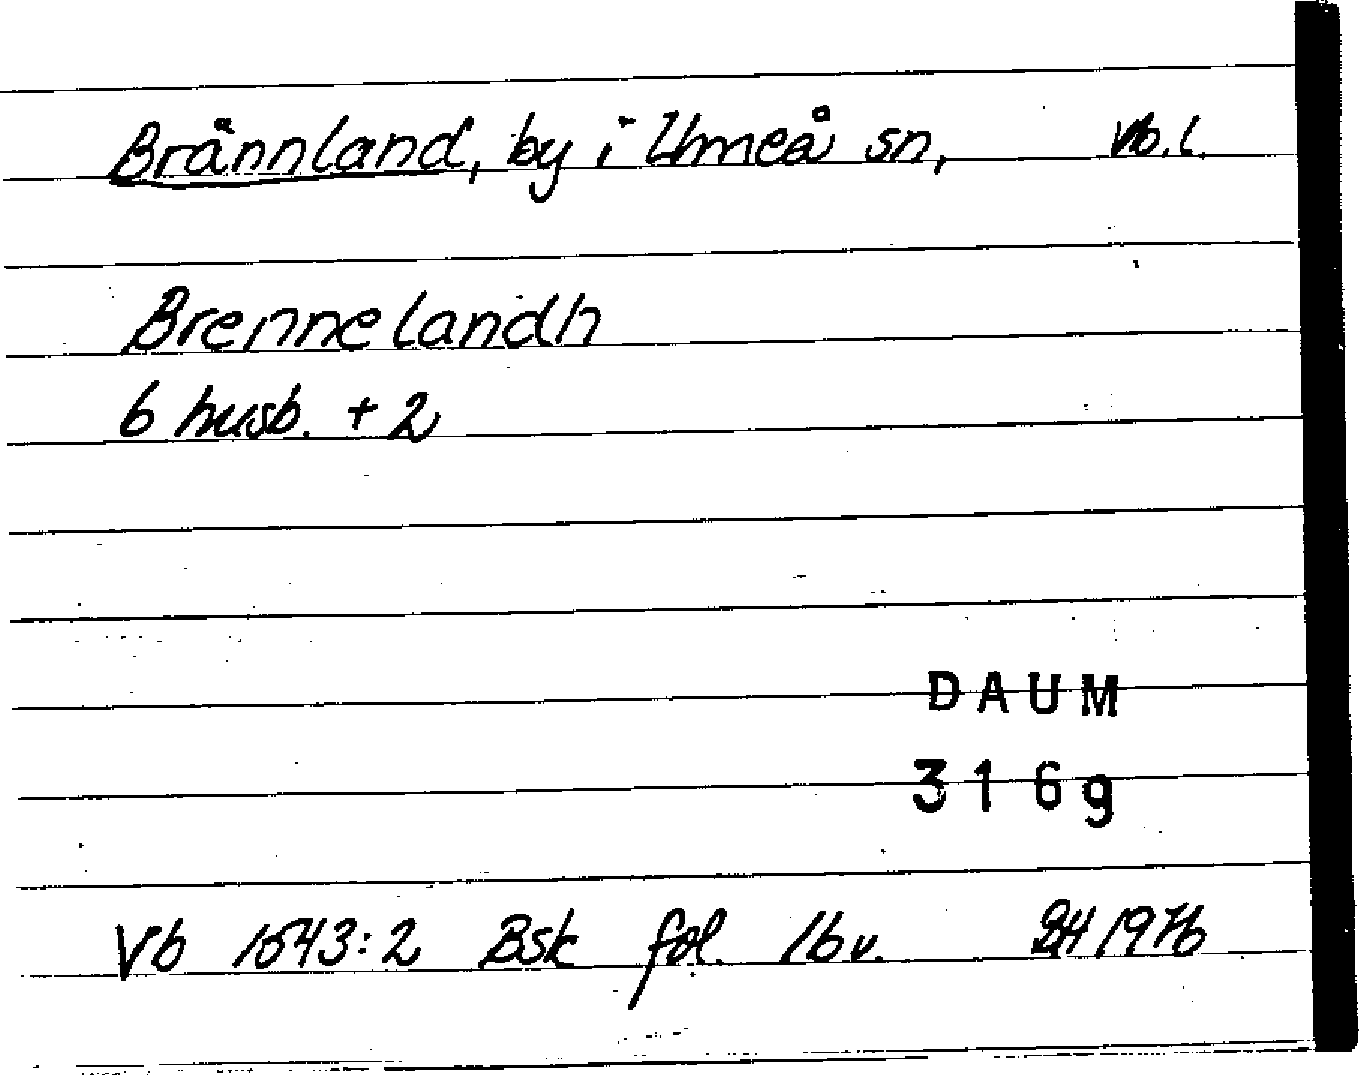 Brännland, by i Umeå sn, Vb. l.
Brennelandh
6 husb. + 2
DAUM
3169
Vb 1543:2 Bsk fol. 16v. BH 1976